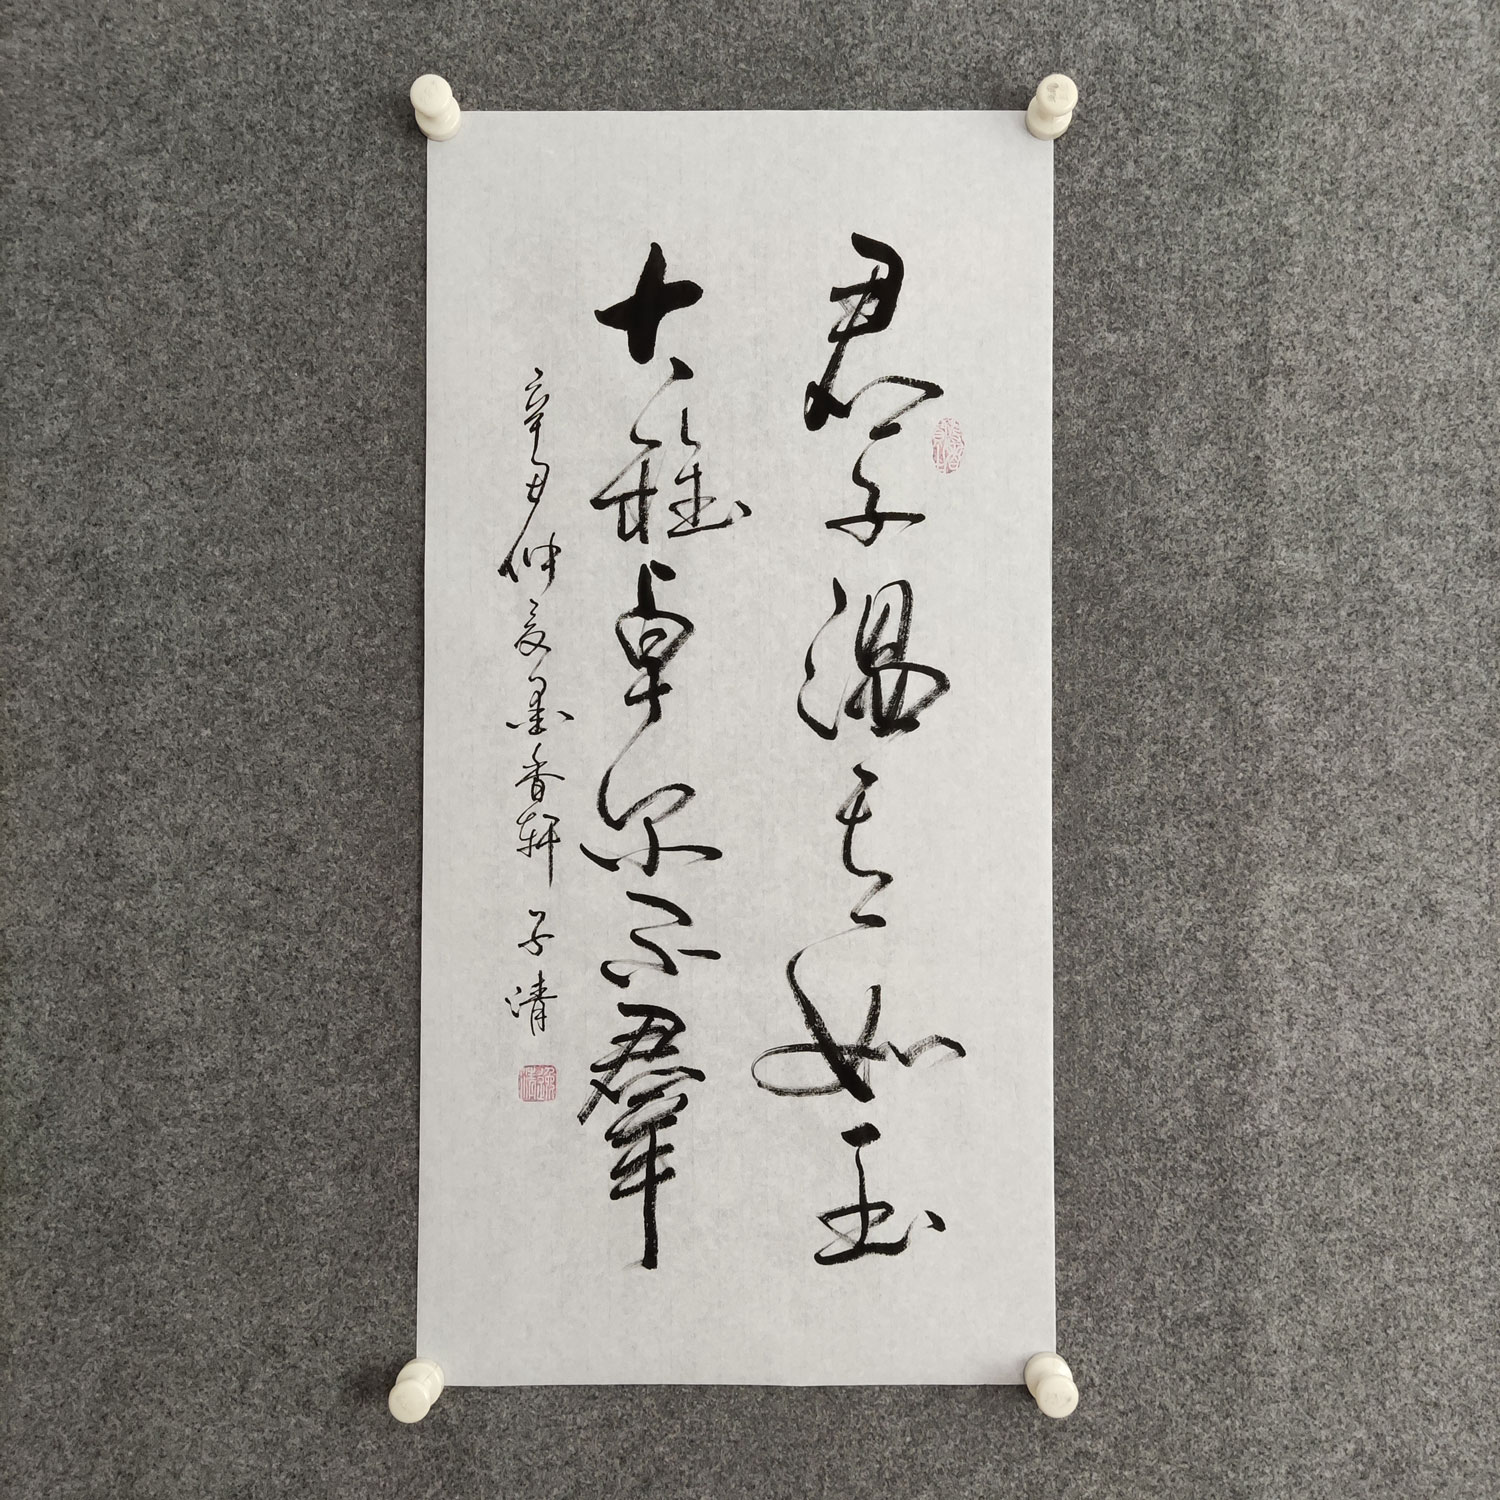 君子温其如玉
大雅卓尔不群
辛丑仲夏墨香轩 子清